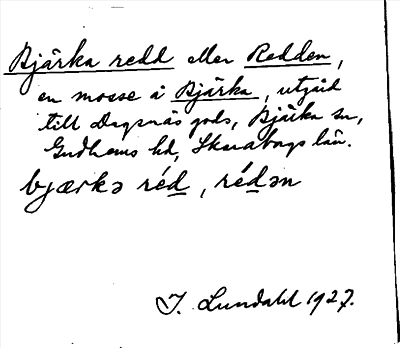 Bjärka redd eller Redden,
en mosse å Bjärka, utgård
till Dagsnäs gods, Bjärka sn,
Gudhems hd, Skarabogs län.
bjærkə réd, rédən
J. Lundahl 1927.